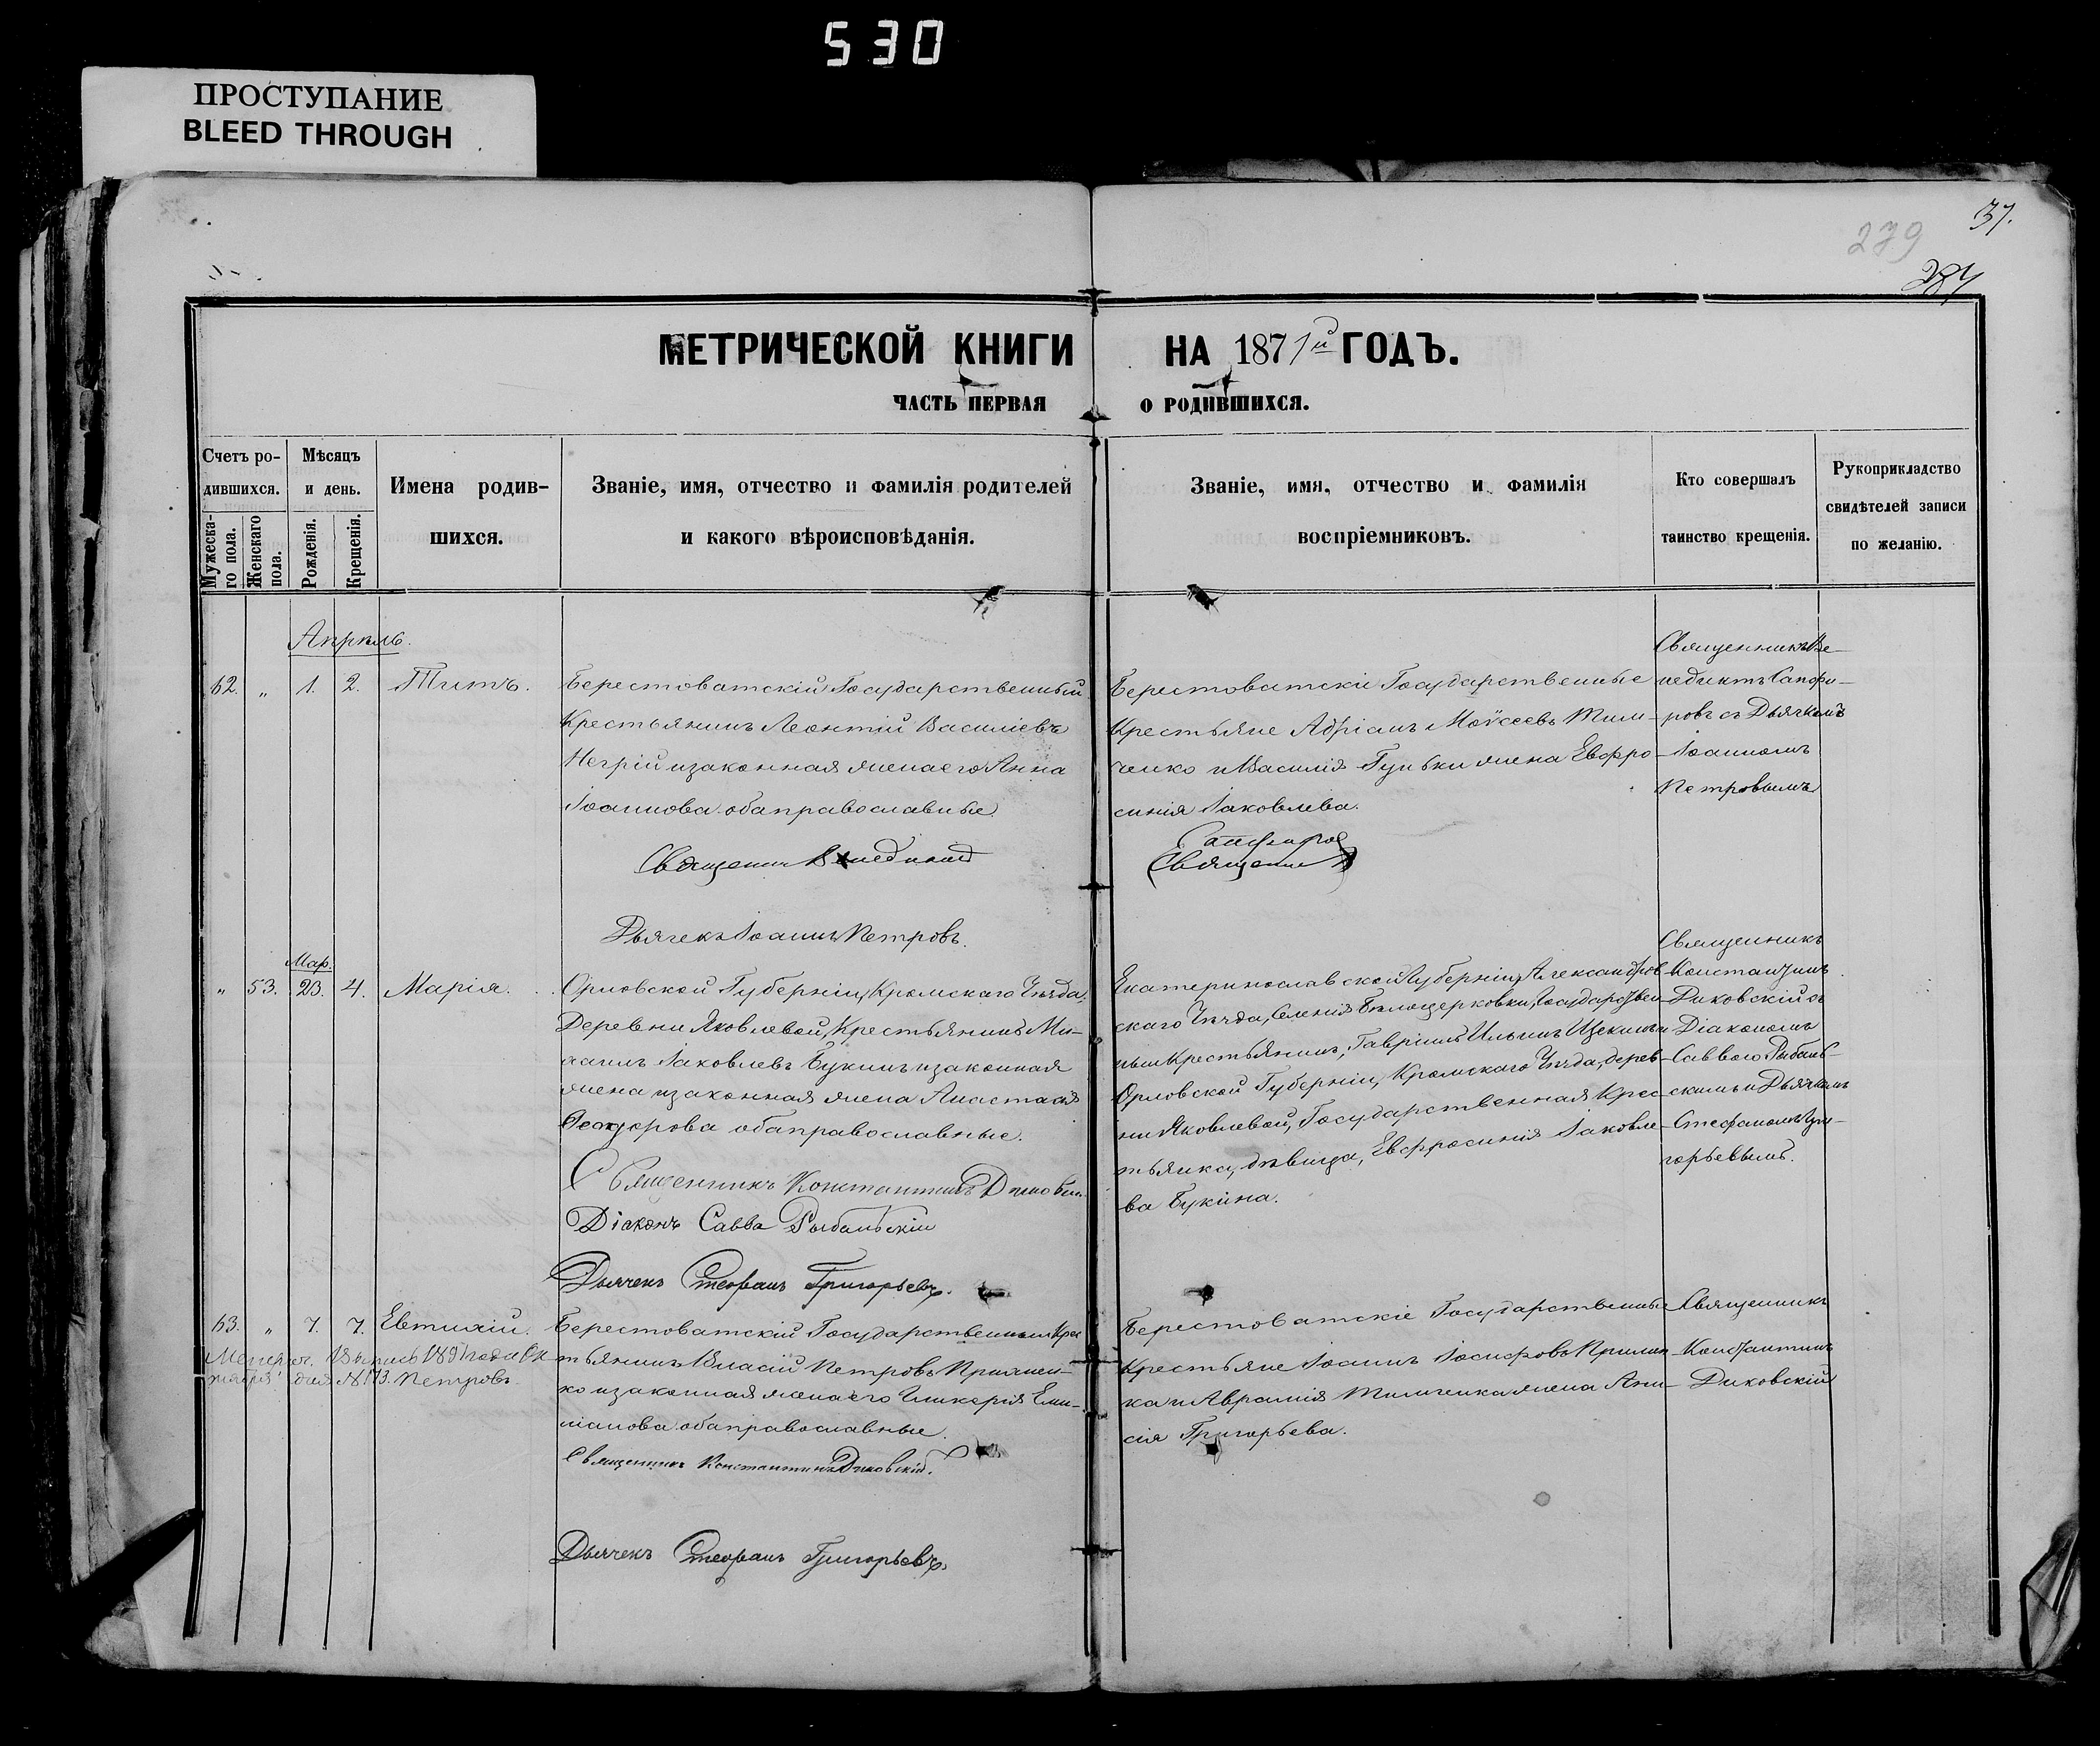 530
ПРОСТУПАНИЕ
BLEED THROUGH
37.
279
284
МЕТРИЧЕСКОЙ КНИГИ НА 1871й ГОДЪ.
ЧАСТЬ ПЕРВАЯ О РОДИВШИХСЯ.
Счетъ ро-
дившихся.
Мужеска-
го пола.
Женскаго
пола.
Мѣсяцъ
и день.
Рожденія.
Крещенія.
Имена родив-
шихся.
Званіе, имя, отчество и фамилія родителей
и какого вѣроисповѣданія.
Званіе, имя, отчество и фамилія
воспріемниковъ.
Кто совершалъ
таинство крещенія.
Рукоприкладство
свидѣтелей записи
по желанію.
Апрѣль.
62. „ 1. 2. Титъ.
Берестоватскій Государственный
Крестьянинъ Леонтій Василіевъ
Негрій и законная жена его Анна
Іоаннова оба православные.
Священникъ Венедиктъ
Дьячекъ Іоаннъ Петровъ.
Берестоватскіе Государственные
Крестьяне Адріанъ Моѵсеевъ Тим-
ченко и Василія Гуньки жена Евфро-
синія Іаковлева.
Сапфировъ
Священникъ Ве-
недиктъ Сапфи-
ровъ съ Дьячкомъ
Іоанномъ
Петровымъ
Мар.
„ 53. 23. 4. Марія.
Орловской Губерніи, Кромскаго Уѣзда,
Деревни Яковлевой, Крестьянинъ Ми-
хаилъ Іаковлевъ Букинъ и законная
жена и законная жена Анастасія
Ѳеодорова оба православные.
Священникъ Константинъ Диковскій
Діаконъ Савва Рыбальскій
Дьячекъ Стефанъ Григорьевъ.
Екатеринославской Губерніи, Александров-
скаго Уѣзда, Селенія Бѣлоцерковки, Государствен-
ный Крестьянинъ, Гавріилъ Ильинъ Щекинъ и
Орловской Губерніи, Кромскаго Уѣзда, дерев-
ни Яковлевой, Государственная Крес-
тьянка, дѣвица, Евфросинія Іаковле-
ва Букина.
Священникъ
Константинъ
Диковскій съ
Діакономъ
Саввою Рыбаль-
скимъ и Дьячкомъ
Стефаномъ Гри-
горьевымъ.
63. „ 7. 7. Евтихій.
Метрич. Выпись 1891 года Ок
тября дня № 173. Петровъ.
Берестоватскій Государственный Крес
тьянинъ Власій Петровъ
ко и законная жена его Гликерія Еми-
ліанова оба православные.
Священникъ Константинъ Диковскій.
Дьячекъ Стефанъ Григорьевъ.
Берестоватскіе Государственные
Крестьяне Іоаннъ Іосифовъ
ка и Аврамія Тимченка жена Ани-
сія Григорьева.
Священникъ
Константинъ
Диковскій